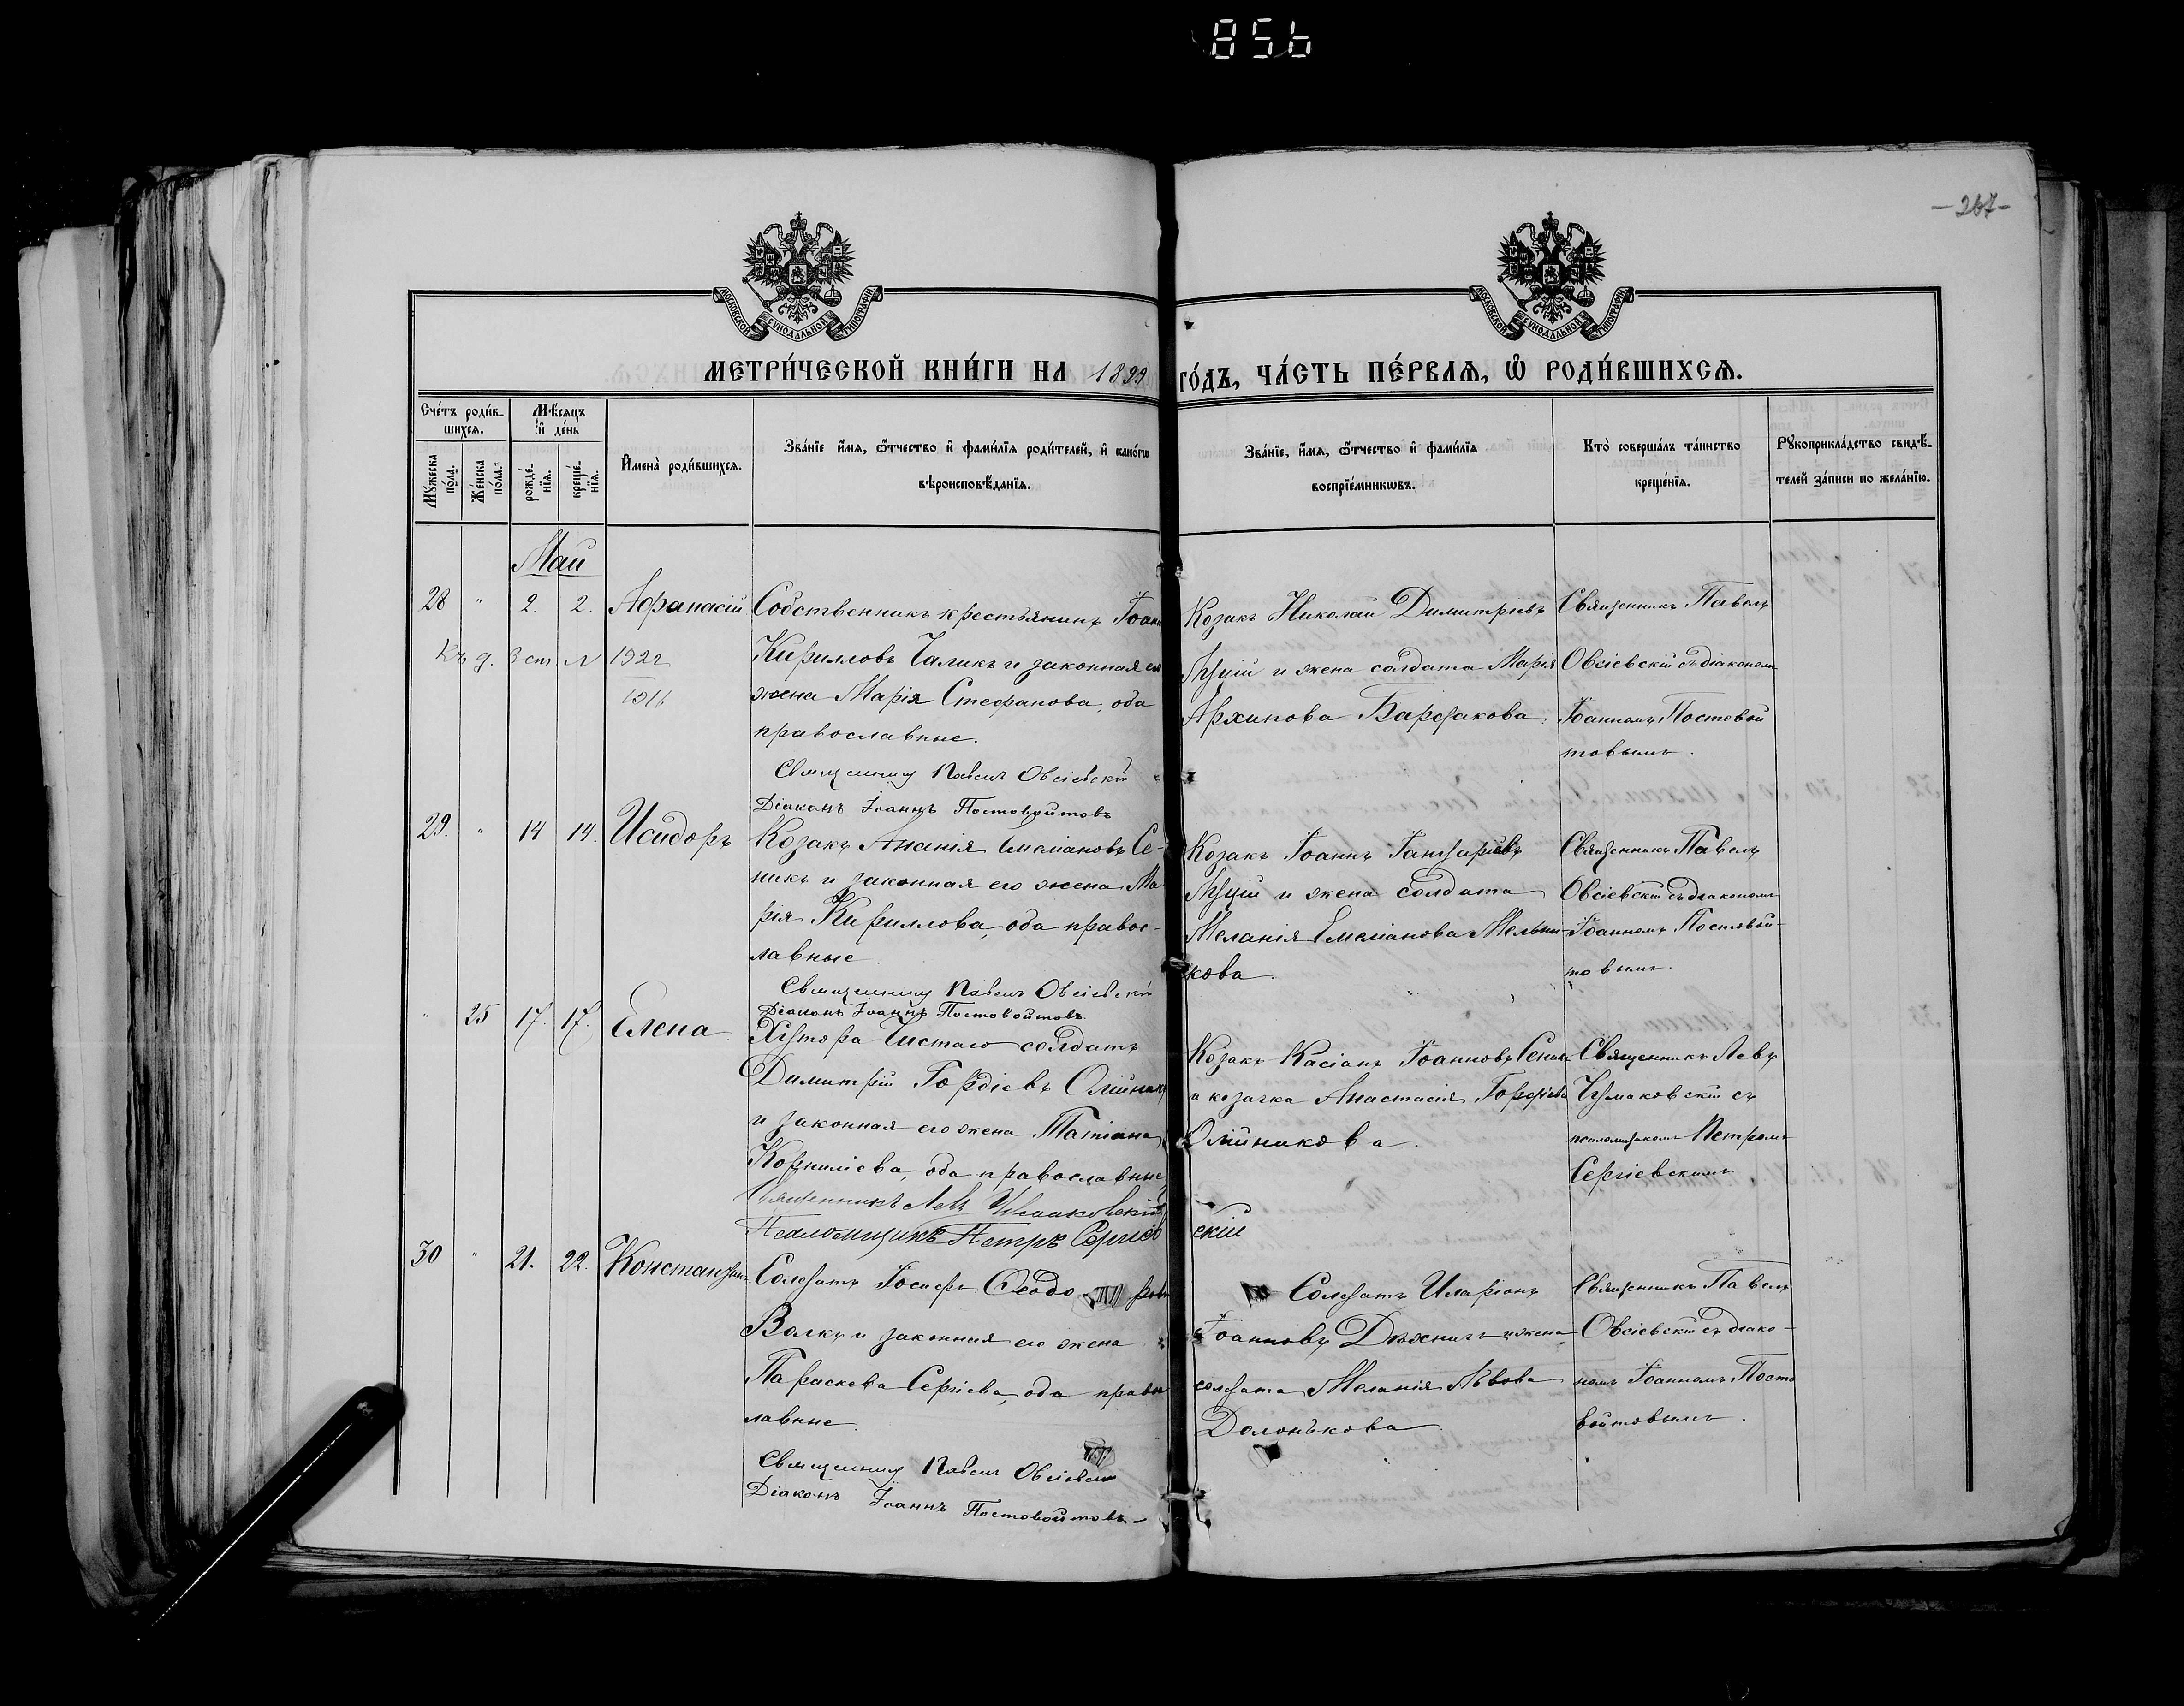 856
-267-
МОСКОВСКОЙ СѴНОДАЛЬНОЙ ТИПОГРАФІИ
МОСКОВСКОЙ СѴНОДАЛЬНОЙ ТИПОГРАФІИ
МЕТРИ́ЧЕСКОЙ КНИ́ГИ НА 1899 ГО́ДЪ, ЧА́СТЬ ПЕ́РВАѦ, Ѽ РОДИ́ВШИХСѦ.
Сче́тъ роди́в-
шихсѧ.
Мꙋжеска
по́ла.
Же́нска
по́ла.
Мѣ́сѧцъ
и҆ де́нь
рожде́-
нїѧ.
креще́-
нїѧ.
И҆мена̀ роди́вшихсѧ.
Зва́нїе и҆́мѧ, ѻ҆́тчество и҆ фами́лїѧ роди́телей, и҆ како́гѡ
вѣроисповѣ́данїѧ.
Зва́нїе, и҆́мѧ, ѻ҆́тчество и҆ фами́лїѧ
воспрїе́мникѡвъ.
Кто̀ соверша́лъ та́инство
креще́нїѧ.
Рꙋкоприкла́дство свидѣ́-
телей за́писи по жела́нїю.
Май
28 " 2. 2. Афанасій
Собственникъ крестьянинъ Іоан
Кирилловъ Чаликъ и законная ея
жена Марія Стефанова, оба
православные.
Священникъ Павелъ Овсіевскій
Діаконъ Іоаннъ Постовойтовъ
Козакъ Николай Димитріевъ
и жена солдата Марія
Архипова
Священникъ Павелъ
Овсіевскій съ діакономъ
Іоанномъ Постовой
товымъ.
1922
1916
29. " 14 14. Исидоръ
Козакъ Ананія Емеліановъ Се-
никъ и законная его жена Ма
рія Кириллова, оба правос-
лавные.
Священникъ Павелъ Овсіевскій
Діаконъ Іоаннъ Постовойтовъ.
Козакъ Іоаннъ
и жена солдата
Меланія Емеліанова Мельни-
кова.
Священникъ Павелъ
Овсіевскій съ діакономъ
Іоанномъ Постовой-
товымъ.
" 25 17. 17. Елена.
Хутора Чистаго солдатъ
Димитрій Гордіевъ Олійникъ
и законная его жена Татіана
Корниліева, оба православные
Священникъ Левъ Чумаковскій
Псаломщикъ Петръ Сергіевскій
Козакъ Касіанъ Іоанновъ Сеник
и козачка Анастасія Гордіева
Олійникова.
Священникъ Левъ
Чумаковскій съ
псаломщикомъ Петромъ
Сергіевскимъ
30 " 21. 22. Константинъ
Солдатъ Іосифъ Ѳеодо ровъ
Волкъ и законная его жена
Параскева Сергіева, оба правос
лавные.
Священникъ Павелъ Овсіевскій
Діаконъ Іоаннъ Постовойтовъ
Солдатъ Иларіонъ
Іоанновъ и жена
солдата Меланія Львова
Долонькова.
Священникъ Павелъ
Овсіевскій съ діако-
номъ Іоанномъ Посто
войтовымъ.